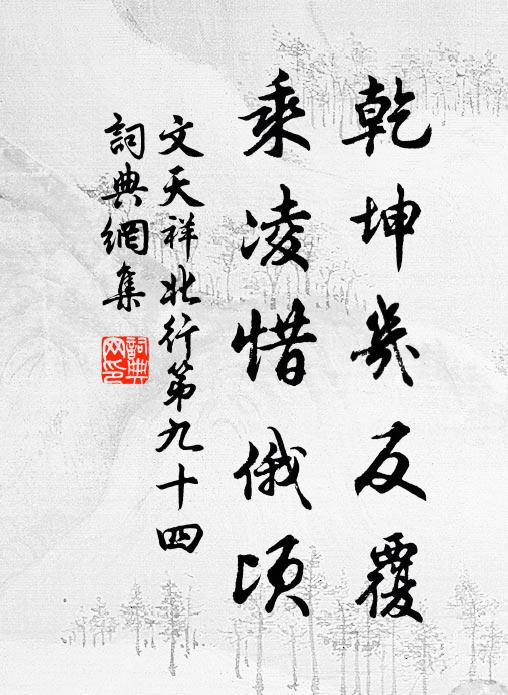 乾坤幾反覆
乘凌惜俄頃
文天祥北行第九十四
詞典網集
詞典網印